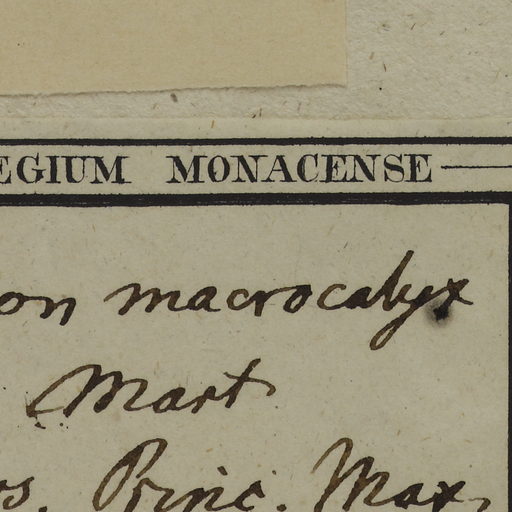 EGIUM MONACENSE
on macrocalyx
Mart
rs. Princ. Max.